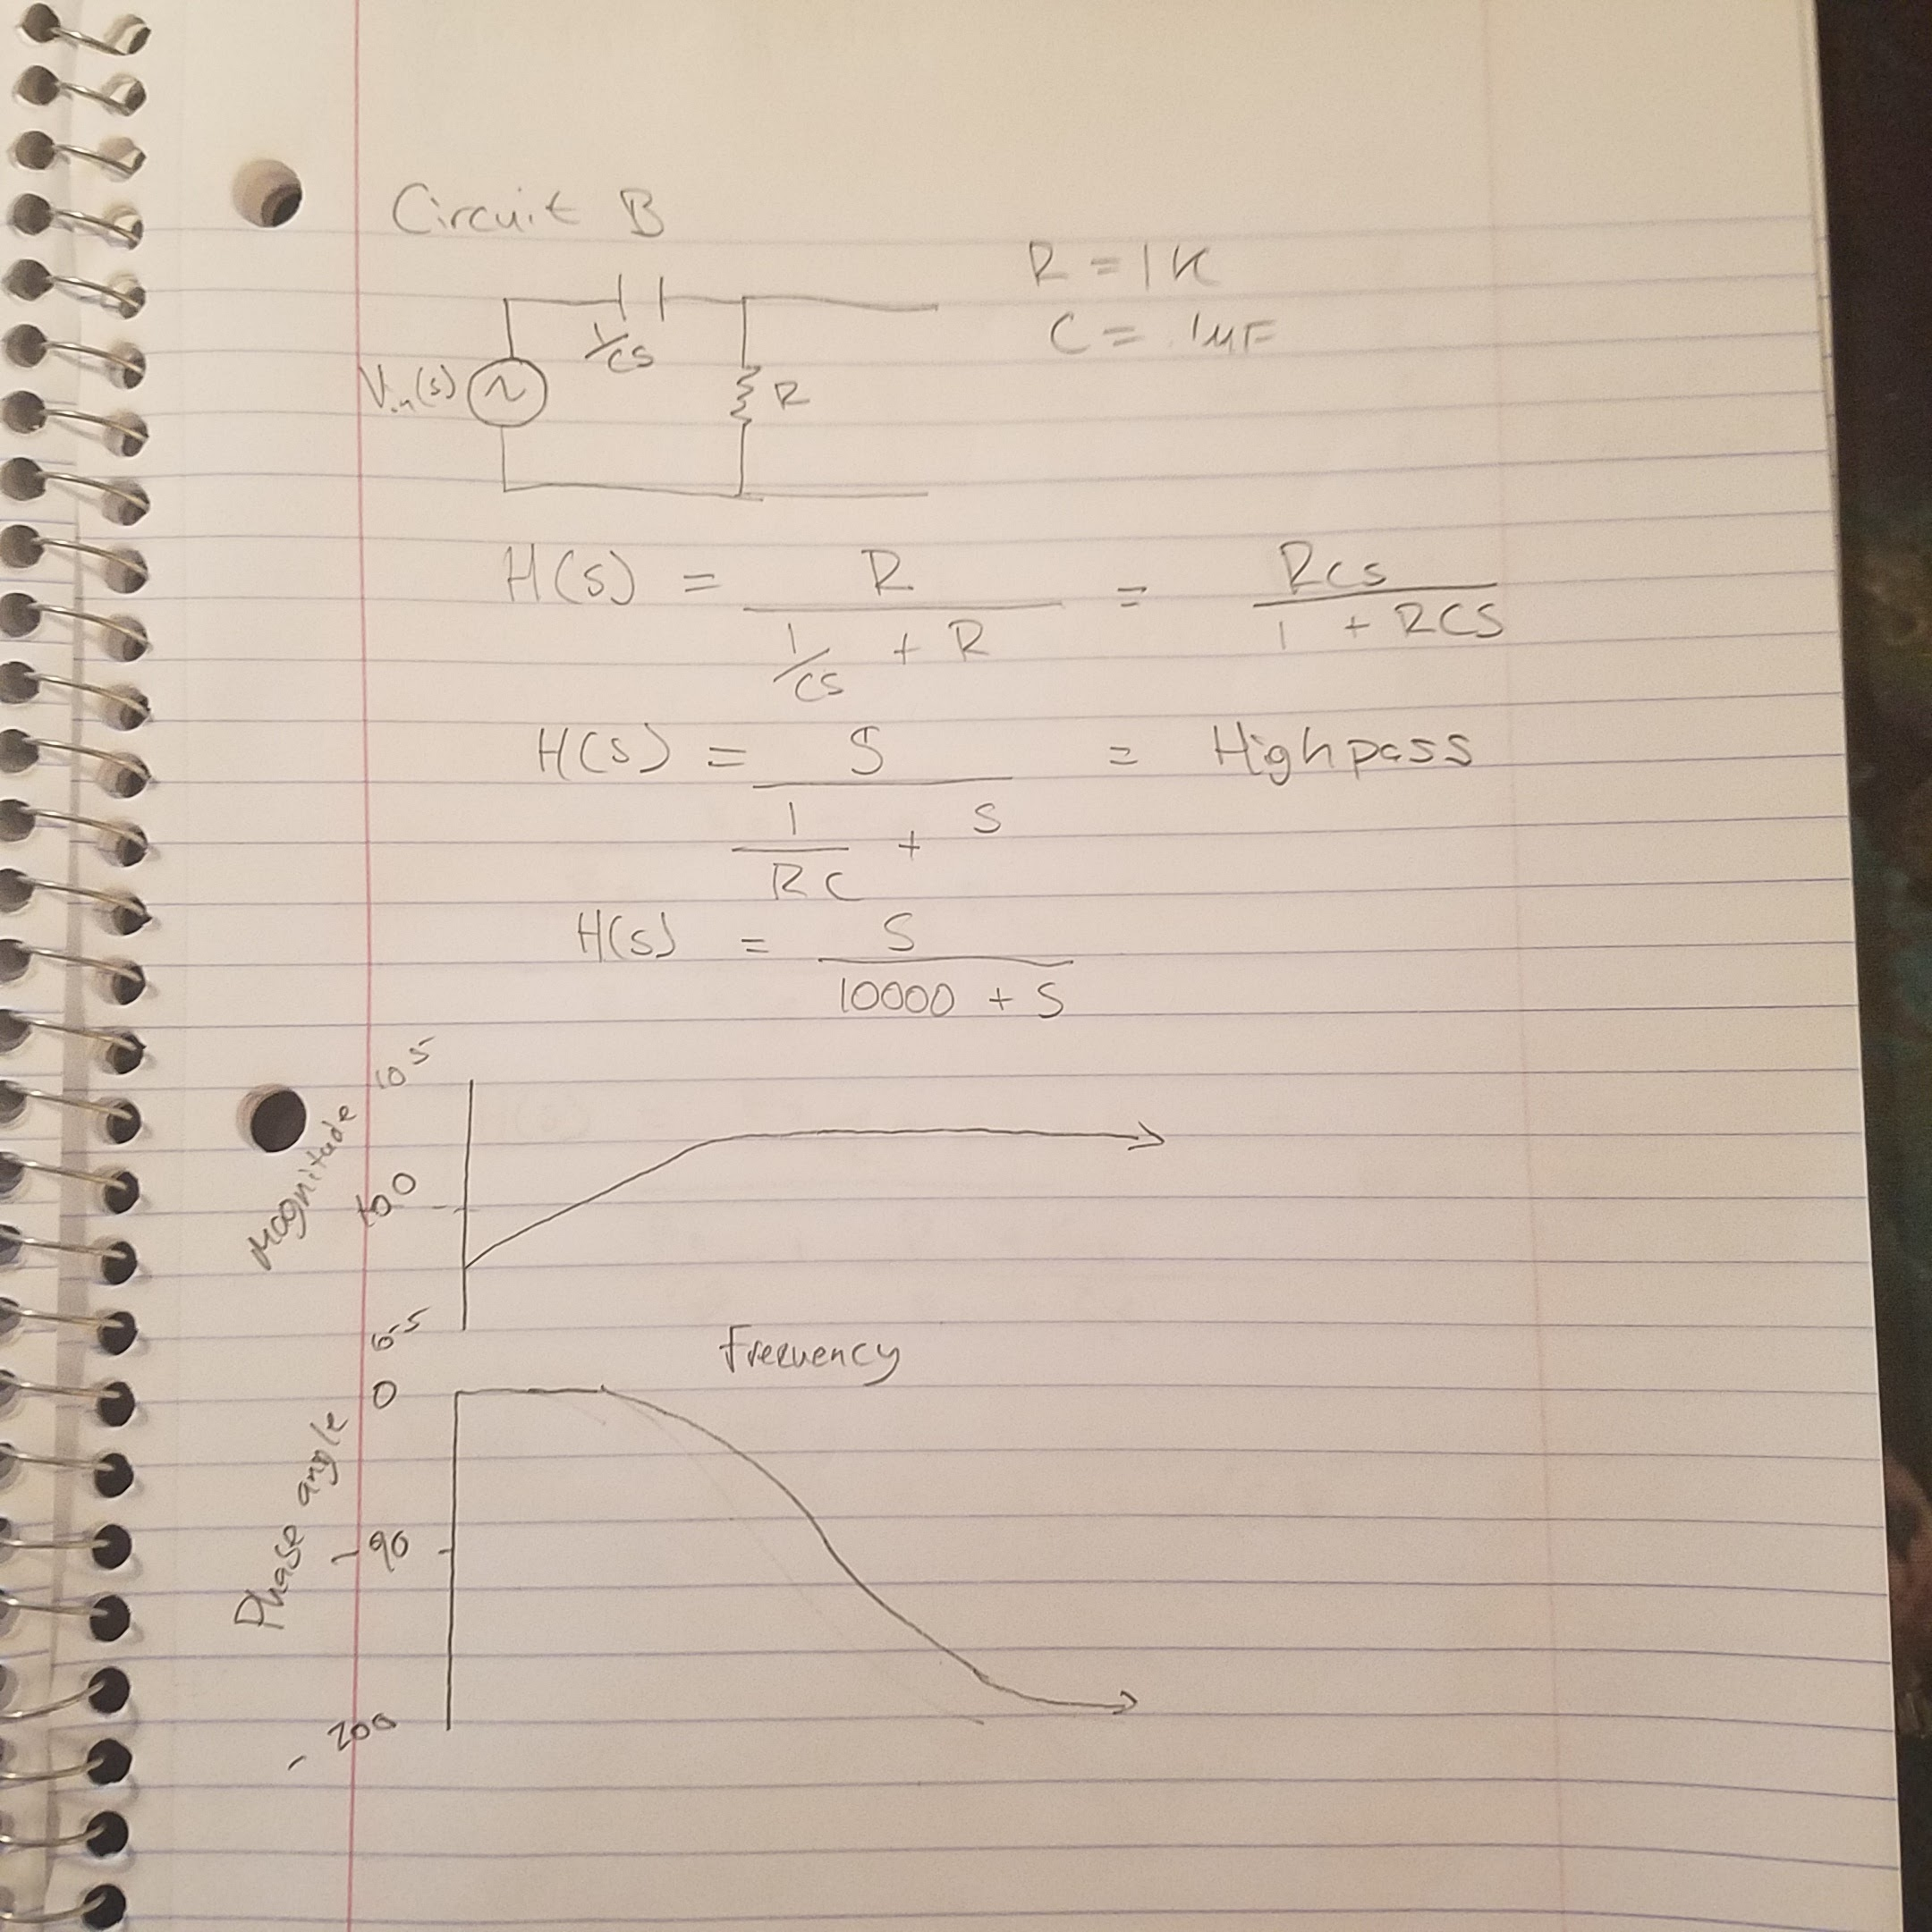 Circuit B
R = 1K
C = .1μF
1/CS
Vin(s) ~ R
H(s) = R / (1/CS + R) = RCS / (1 + RCS)
H(s) = S / (1/RC + S) = Highpass
H(s) = S / (10000 + S)
10^5
Magnitude
10^0
10^-5
Frequency
0
Phase angle
-90
-200